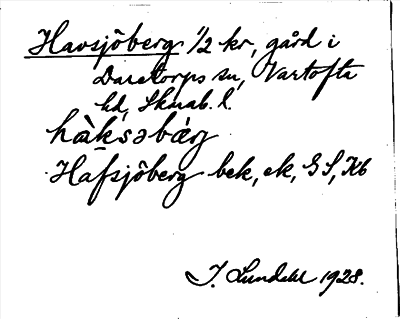 Havsjöberg 1/2 kr, gård i
Daretorps sn, Vartofta
hd, Skarab. l.
hàksəbárj
Hafsjöberg bek, ek, GS, Kb
J. Lundahl 1928.